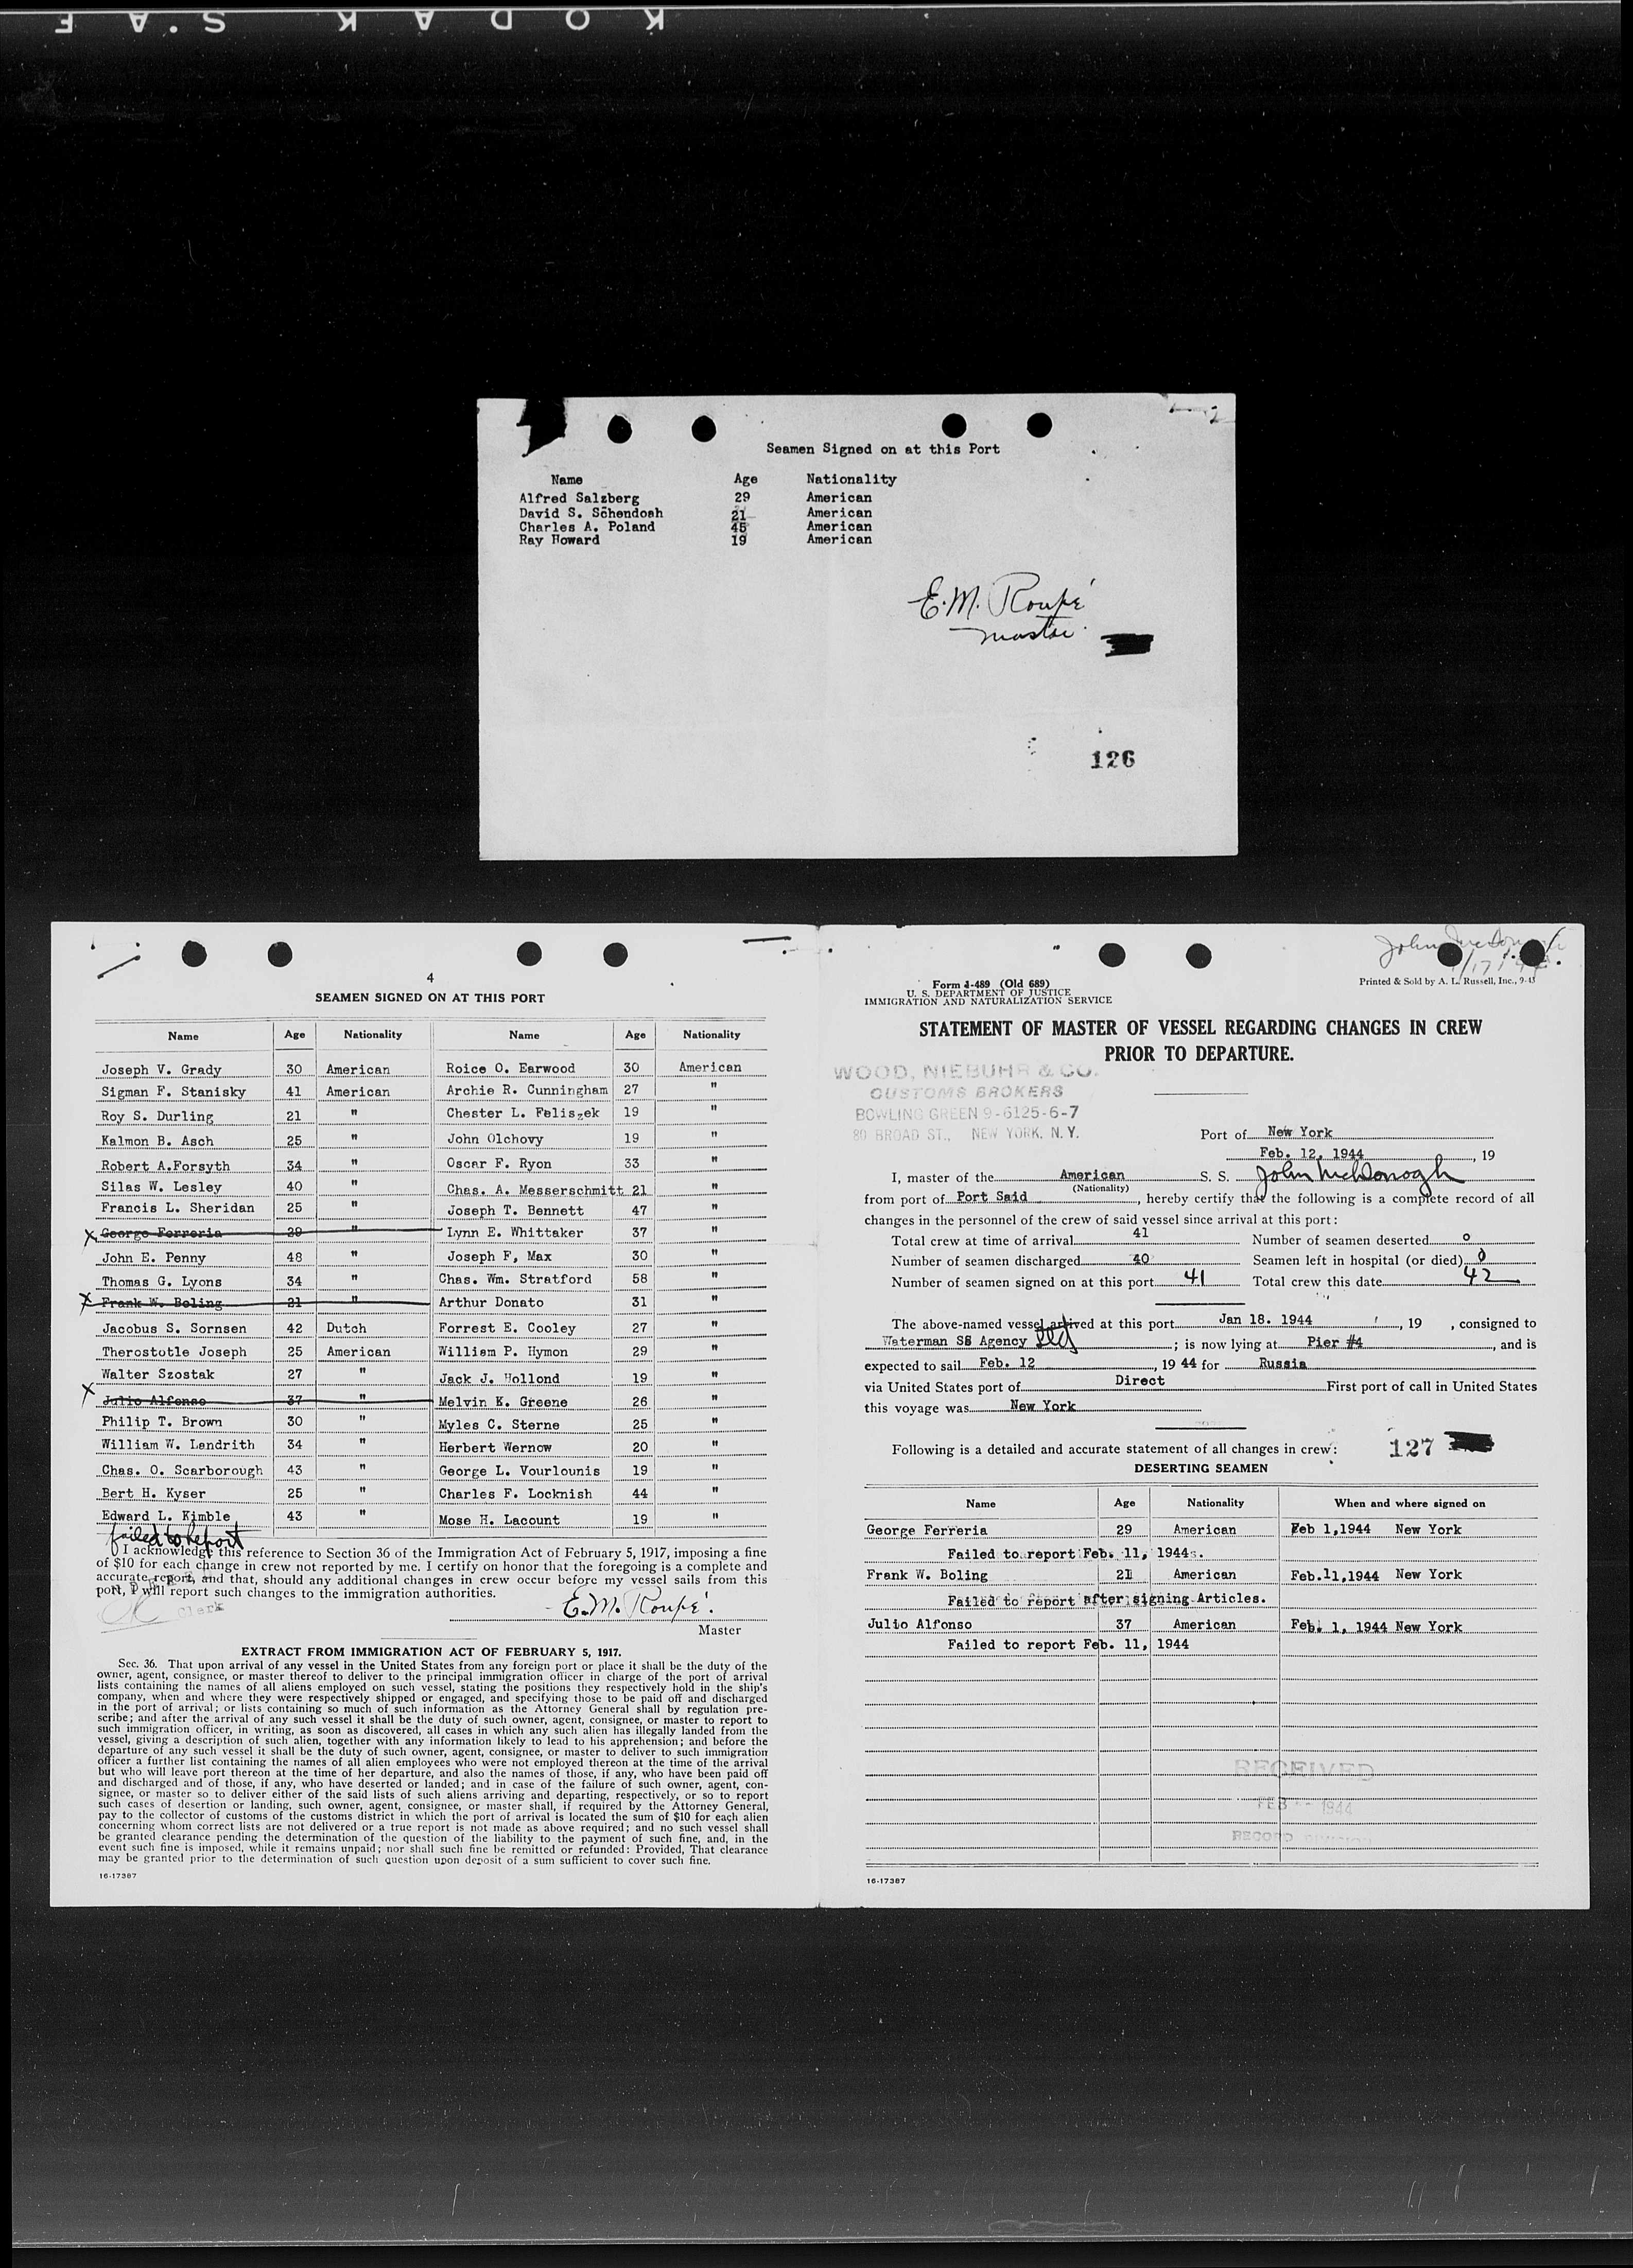 KODAK S.A F
Seamen Signed on at this Port
Name Age Nationality
Alfred Salzberg 29 American
David S. Schendosh 21 American
Charles A. Poland 45 American
Ray Howard 19 American
E.M. Roupé
master
126
4
SEAMEN SIGNED ON AT THIS PORT
Name Age Nationality Name Age Nationality
Joseph V. Grady 30 American Roice O. Earwood 30 American
Sigman F. Stanisky 41 American Archie R. Cunningham 27 "
Roy S. Durling 21 " Chester L. Feliszek 19 "
Kalmon B. Asch 25 " John Olchovy 19 "
Robert A.Forsyth 34 " Oscar F. Ryon 33 "
Silas W. Lesley 40 " Chas. A. Messerschmitt 21 "
Francis L. Sheridan 25 " Joseph T. Bennett 47 "
X George Ferreria 29 " Lynn E. Whittaker 37 "
John E. Penny 48 " Joseph F, Max 30 "
Thomas G. Lyons 34 " Chas. Wm. Stratford 58 "
X Frank W. Boling 21 " Arthur Donato 31 "
Jacobus S. Sornsen 42 Dutch Forrest E. Cooley 27 "
Therostotle Joseph 25 American William P. Hymon 29 "
Walter Szostak 27 " Jack J. Hollond 19 "
X Julio Alfonso 37 " Melvin K. Greene 26 "
Philip T. Brown 30 " Myles C. Sterne 25 "
William W. Lendrith 34 " Herbert Wernow 20 "
Chas. O. Scarborough 43 " George L. Vourlounis 19 "
Bert H. Kyser 25 " Charles F. Locknish 44 "
Edward L. Kimble 43 " Mose H. Lacount 19 "
failed to Report
I acknowledge this reference to Section 36 of the Immigration Act of February 5, 1917, imposing a fine
of $10 for each change in crew not reported by me. I certify on honor that the foregoing is a complete and
accurate report, and that, should any additional changes in crew occur before my vessel sails from this
port, I will report such changes to the immigration authorities.
Clerk
E.M. Roupé.
Master
EXTRACT FROM IMMIGRATION ACT OF FEBRUARY 5, 1917.
Sec. 36. That upon arrival of any vessel in the United States from any foreign port or place it shall be the duty of the
owner, agent, consignee, or master thereof to deliver to the principal immigration officer in charge of the port of arrival
lists containing the names of all aliens employed on such vessel, stating the positions they respectively hold in the ship's
company, when and where they were respectively shipped or engaged, and specifying those to be paid off and discharged
in the port of arrival; or lists containing so much of such information as the Attorney General shall by regulation pre-
scribe; and after the arrival of any such vessel it shall be the duty of such owner, agent, consignee, or master to report to
such immigration officer, in writing, as soon as discovered, all cases in which any such alien has illegally landed from the
vessel, giving a description of such alien, together with any information likely to lead to his apprehension; and before the
departure of any such vessel it shall be the duty of such owner, agent, consignee, or master to deliver to such immigration
officer a further list containing the names of all alien employees who were not employed thereon at the time of the arrival
but who will leave port thereon at the time of her departure, and also the names of those, if any, who have been paid off
and discharged and of those, if any, who have deserted or landed; and in case of the failure of such owner, agent, con-
signee, or master so to deliver either of the said lists of such aliens arriving and departing, respectively, or so to report
such cases of desertion or landing, such owner, agent, consignee, or master shall, if required by the Attorney General,
pay to the collector of customs of the customs district in which the port of arrival is located the sum of $10 for each alien
concerning whom correct lists are not delivered or a true report is not made as above required; and no such vessel shall
be granted clearance pending the determination of the question of the liability to the payment of such fine, and, in the
event such fine is imposed, while it remains unpaid; nor shall such fine be remitted or refunded: Provided, That clearance
may be granted prior to the determination of such question upon deposit of a sum sufficient to cover such fine.
16-17387
Form I-489 (Old 689)
U. S. DEPARTMENT OF JUSTICE
IMMIGRATION AND NATURALIZATION SERVICE
Printed & Sold by A. L. Russell, Inc., 9-43
STATEMENT OF MASTER OF VESSEL REGARDING CHANGES IN CREW
PRIOR TO DEPARTURE.
WOOD, NIEBUHR & CO.
CUSTOMS BROKERS
BOWLING GREEN 9-6125-6-7
80 BROAD ST., NEW YORK, N.Y.
Port of New York
Feb. 12, 1944, 19
I, master of the American S. S. John McDonogh
(Nationality)
from port of Port Said, hereby certify that the following is a complete record of all
changes in the personnel of the crew of said vessel since arrival at this port:
Total crew at time of arrival 41 Number of seamen deserted 0
Number of seamen discharged 40 Seamen left in hospital (or died) 0
Number of seamen signed on at this port 41 Total crew this date 42
The above-named vessel arrived at this port Jan 18. 1944, 19 , consigned to
Waterman SS Agency Ltd; is now lying at Pier #4, and is
expected to sail Feb. 12, 1944 for Russia
via United States port of Direct First port of call in United States
this voyage was New York
Following is a detailed and accurate statement of all changes in crew: 127
DESERTING SEAMEN
Name Age Nationality When and where signed on
George Ferreria 29 American Feb 1,1944 New York
Failed to report Feb. 11, 1944.
Frank W. Boling 21 American Feb.11,1944 New York
Failed to report after signing Articles.
Julio Alfonso 37 American Feb. 1, 1944 New York
Failed to report Feb. 11, 1944
RECEIVED
FEB 1944
RECORD DIVISION
16-17387